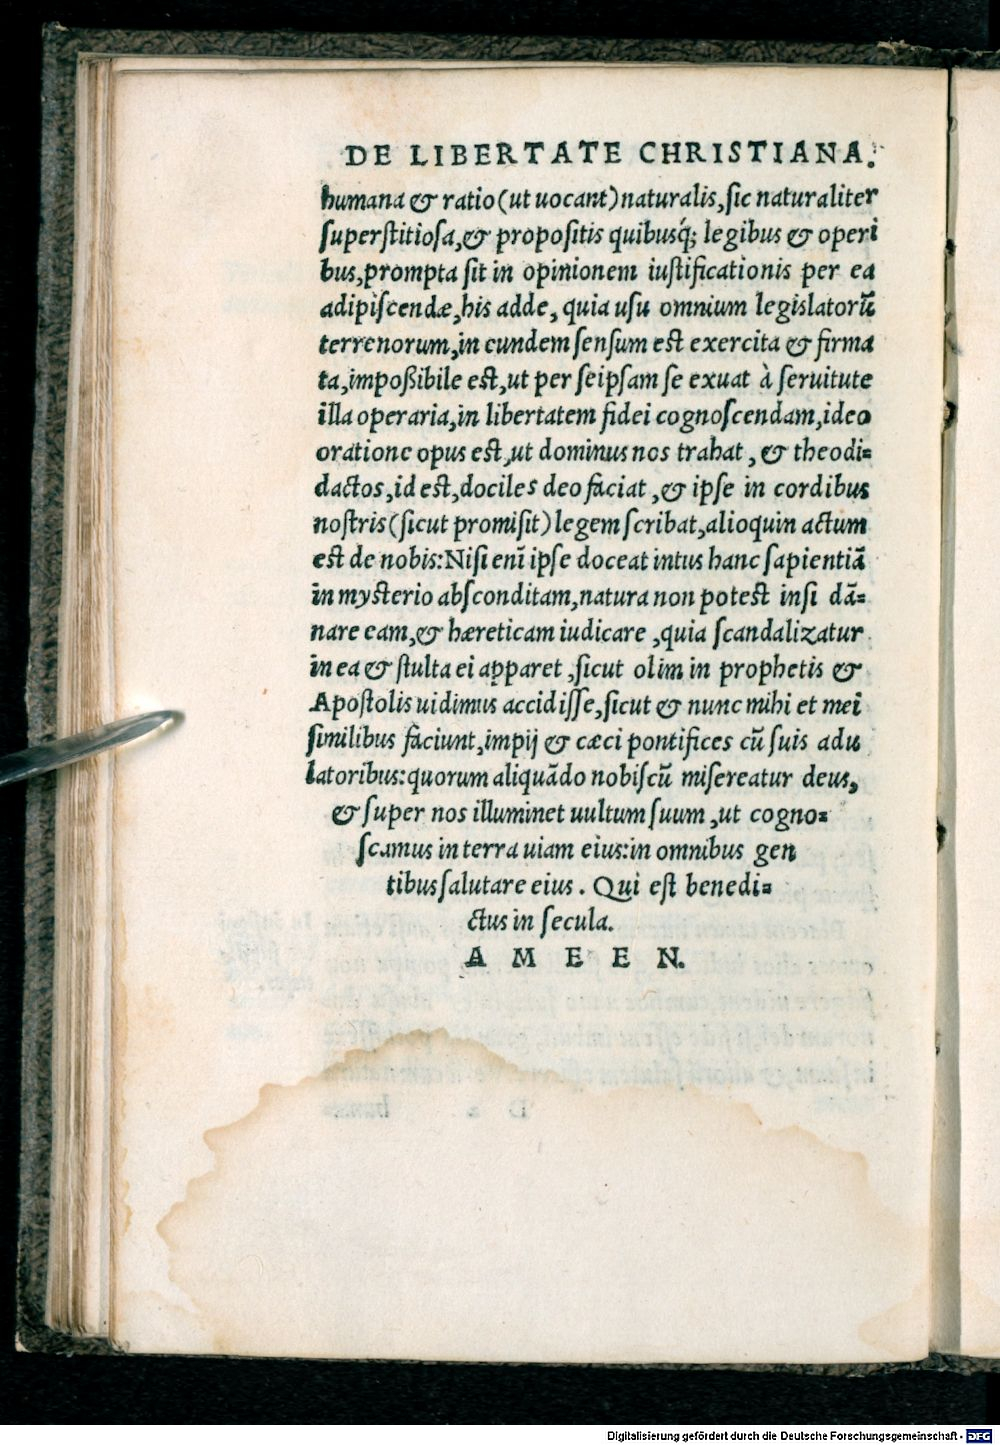 DE LIBERTATE CHRISTIANA.
humana & ratio (ut uocant) naturalis, sic naturaliter
superstitiosa, & propositis quibusq́; legibus & operi
bus, prompta sit in opinionem iustificationis per ea
adipiscendæ, his adde, quia usu omnium legislatorũ
terrenorum, in eundem sensum est exercita & firma
ta, impoßibile est, ut per seipsam se exuat à seruitute
illa operaria, in libertatem fidei cognoscendam, ideo
oratione opus est, ut dominus nos trahat, & theodi-
dactos, id est, dociles deo faciat, & ipse in cordibus
nostris (sicut promisit) legem scribat, alioquin actum
est de nobis: Nisi enĩ ipse doceat intus hanc sapientiã
in mysterio absconditam, natura non potest insi dã-
nare eam, & hæreticam iudicare, quia scandalizatur
in ea & stulta ei apparet, sicut olim in prophetis &
Apostolis uidimus accidisse, sicut & nunc mihi et mei
similibus faciunt, impij & cæci pontifices cũ suis adu
latoribus: quorum aliquãdo nobiscũ misereatur deus,
& super nos illuminet uultum suum, ut cogno-
scamus in terra uiam eius: in omnibus gen
tibus salutare eius. Qui est benedi-
ctus in secula.
A M E E N.
Digitalisierung gefördert durch die Deutsche Forschungsgemeinschaft - DFG